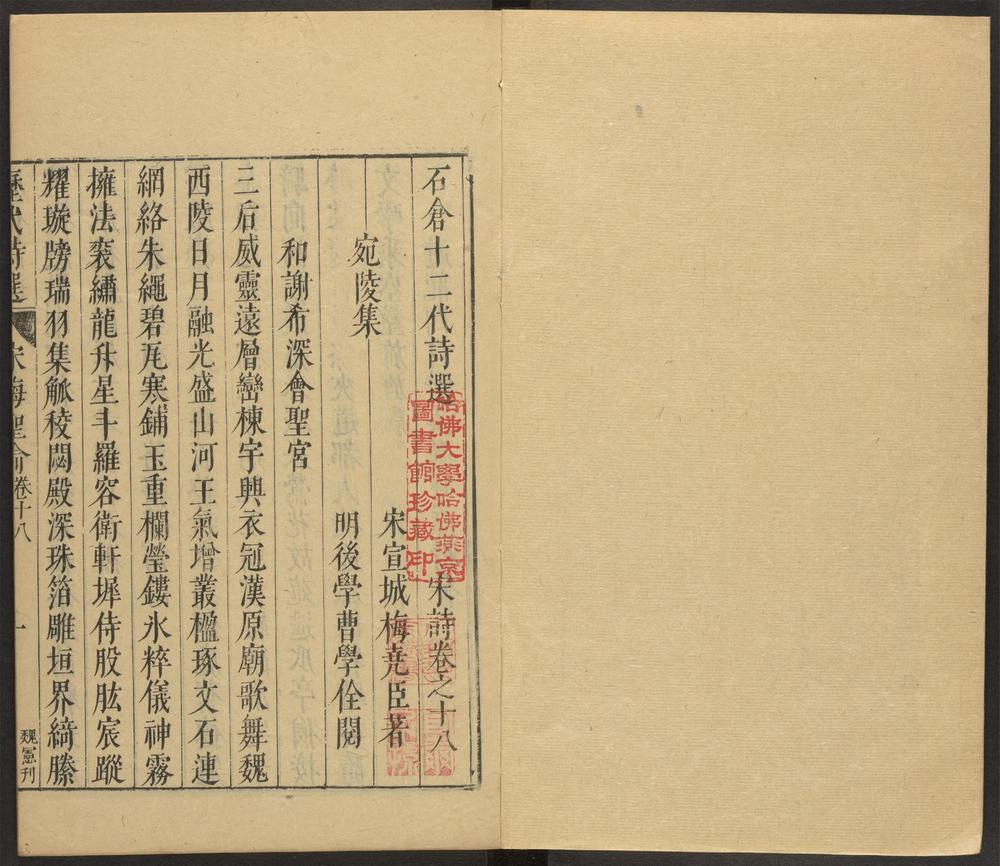 石倉十二代詩選 宋詩卷之十八
宋宣城梅堯臣著
宛陵集 明後學曹學佺閱
和謝希深會聖宮
三后威靈遠層巒棟宇興衣冠漢原廟歌舞魏
西陵日月融光盛山河王氣增叢楹琢文石連
網絡朱繩碧瓦寒鋪玉重欄瑩鏤氷粹儀神霧
擁法衮繡龍升星斗羅容衛軒墀侍股肱宸蹤
耀璇牓瑞羽集觚稜閟殿深珠箔雕垣界綺塍
歷代詩選 宋梅聖俞卷十八 一 魏憲刊
哈佛大學哈佛燕京
圖書館珍藏印